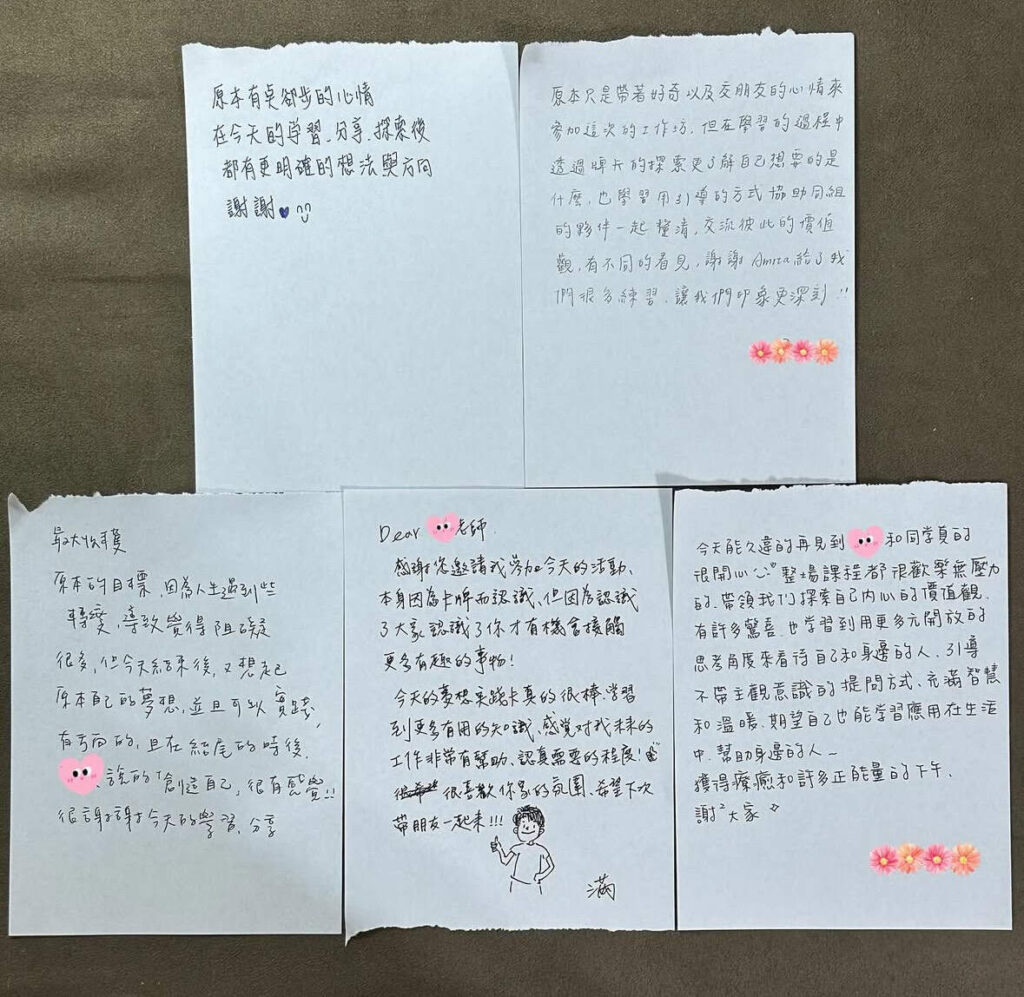 原本有点卻步的心情
在今天的学習、分享、探索後
都有更明確的想法與方向
謝謝
原本只是帶著好奇以及交朋友的心情來
參加這次的工作坊,但在學習的過程中
透過牌卡的探索更了解自己想要的是
什麼,也學習用引導的方式協助同組
的夥伴一起釐清,交流彼此的價值
觀,有不同的看見,謝謝Amita給了我
們很多練習,讓我們印象更深刻!!
最大收穫
原本的目標,因為人生遇到些
轉變,導致覺得阻礙
很多,但今天結束後,又想起
原本自己的夢想,並且可以實踐,
有方向的,且在結尾的時後,
說的「創造自己,很有感覺!!
很謝謝今天的學習,分享
Dear 老師,
感謝您邀請我參加今天的活動、
本身因為卡牌而認識、但因為認識
了大家、認識了你才有機會接觸
更多有趣的事物!
今天的夢想實踐卡真的很棒、學習
到更多有用的知識、感覚對我未來的
工作非常有幫助、認真需要的程度!
很喜歡你家的氛圍、希望下次
帶朋友一起來!!!
滿
今天能久違的再見到 和同学真的
很開心 整場課程都很歡樂無壓力
的、帶領我们探索自己內心的價值觀,
有許多驚喜、也学習到用更多元開放的
思考角度來看待自己和身邊的人、引導
不帶主觀意識的提問方式、充滿智慧
和溫暖、期望自己也能学習應用在生活
中、幫助身邊的人~
獲得療癒和許多正能量的下午、
謝²大家